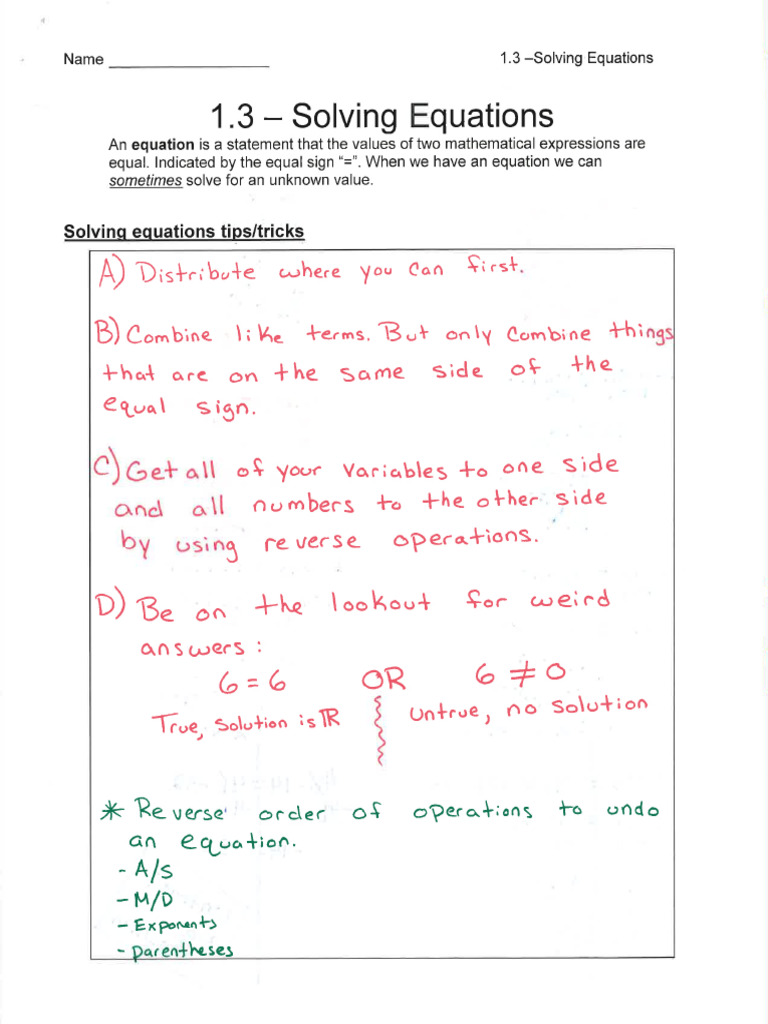 Name ____________________ 1.3 –Solving Equations
1.3 – Solving Equations
An equation is a statement that the values of two mathematical expressions are
equal. Indicated by the equal sign “=”. When we have an equation we can
sometimes solve for an unknown value.
Solving equations tips/tricks
A) Distribute where you can first.
B) Combine like terms. But only combine things
that are on the same side of the
equal sign.
C) Get all of your variables to one side
and all numbers to the other side
by using reverse operations.
D) Be on the lookout for weird
answers:
6 = 6 OR 6 ≠ 0
True, solution is ℝ Untrue, no solution
* Reverse order of operations to undo
an equation.
- A/S
- M/D
- Exponents
- Parentheses